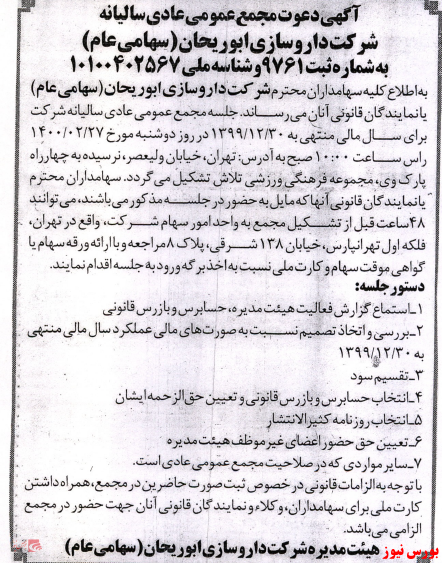 آگهی دعوت مجمع عمومی عادی سالیانه
شرکت داروسازی ابوریحان (سهامی عام)
به شماره ثبت ۹۷۶۱ و شناسه ملی ۱۰۱۰۰۴۰۲۵۶۷
به اطلاع کلیه سهامداران محترم شرکت داروسازی ابوریحان (سهامی عام)
یا نمایندگان قانونی آنان می رساند. جلسه مجمع عمومی عادی سالیانه شرکت
برای سال مالی منتهی به ۱۳۹۹/۱۲/۳۰ در روز دوشنبه مورخ ۱۴۰۰/۰۲/۲۷
راس ساعت ۱۰:۰۰ صبح به آدرس: تهران، خیابان ولیعصر، نرسیده به چهارراه
پارک وی، مجموعه فرهنگی ورزشی تلاش تشکیل می گردد. سهامداران محترم
یا نمایندگان قانونی آنها که مایل به حضور در جلسه مذکور می باشند، می توانند
۴۸ ساعت قبل از تشکیل مجمع به واحد امور سهام شرکت، واقع در تهران،
فلکه اول تهرانپارس، خیابان ۱۳۸ شرقی، پلاک ۸ مراجعه و با ارائه ورقه سهام یا
گواهی موقت سهام و کارت ملی نسبت به اخذ برگه ورود به جلسه اقدام نمایند.
دستور جلسه:
۱ـ استماع گزارش فعالیت هیئت مدیره، حسابرس و بازرس قانونی
۲ـ بررسی و اتخاذ تصمیم نسبت به صورت های مالی عملکرد سال مالی منتهی
به ۱۳۹۹/۱۲/۳۰
۳ـ تقسیم سود
۴ـ انتخاب حسابرس و بازرس قانونی و تعیین حق الزحمه ایشان
۵ـ انتخاب روزنامه کثیرالانتشار
۶ـ تعیین حق حضور اعضای غیر موظف هیئت مدیره
۷ـ سایر مواردی که در صلاحیت مجمع عمومی عادی است.
با توجه به الزامات قانونی در خصوص ثبت صورت حاضرین در مجمع، همراه داشتن
کارت ملی برای سهامداران، وکلاء و نمایندگان قانونی آنان جهت حضور در مجمع
الزامی می باشد.
هیئت مدیره شرکت داروسازی ابوریحان (سهامی عام)
بورس نیوز